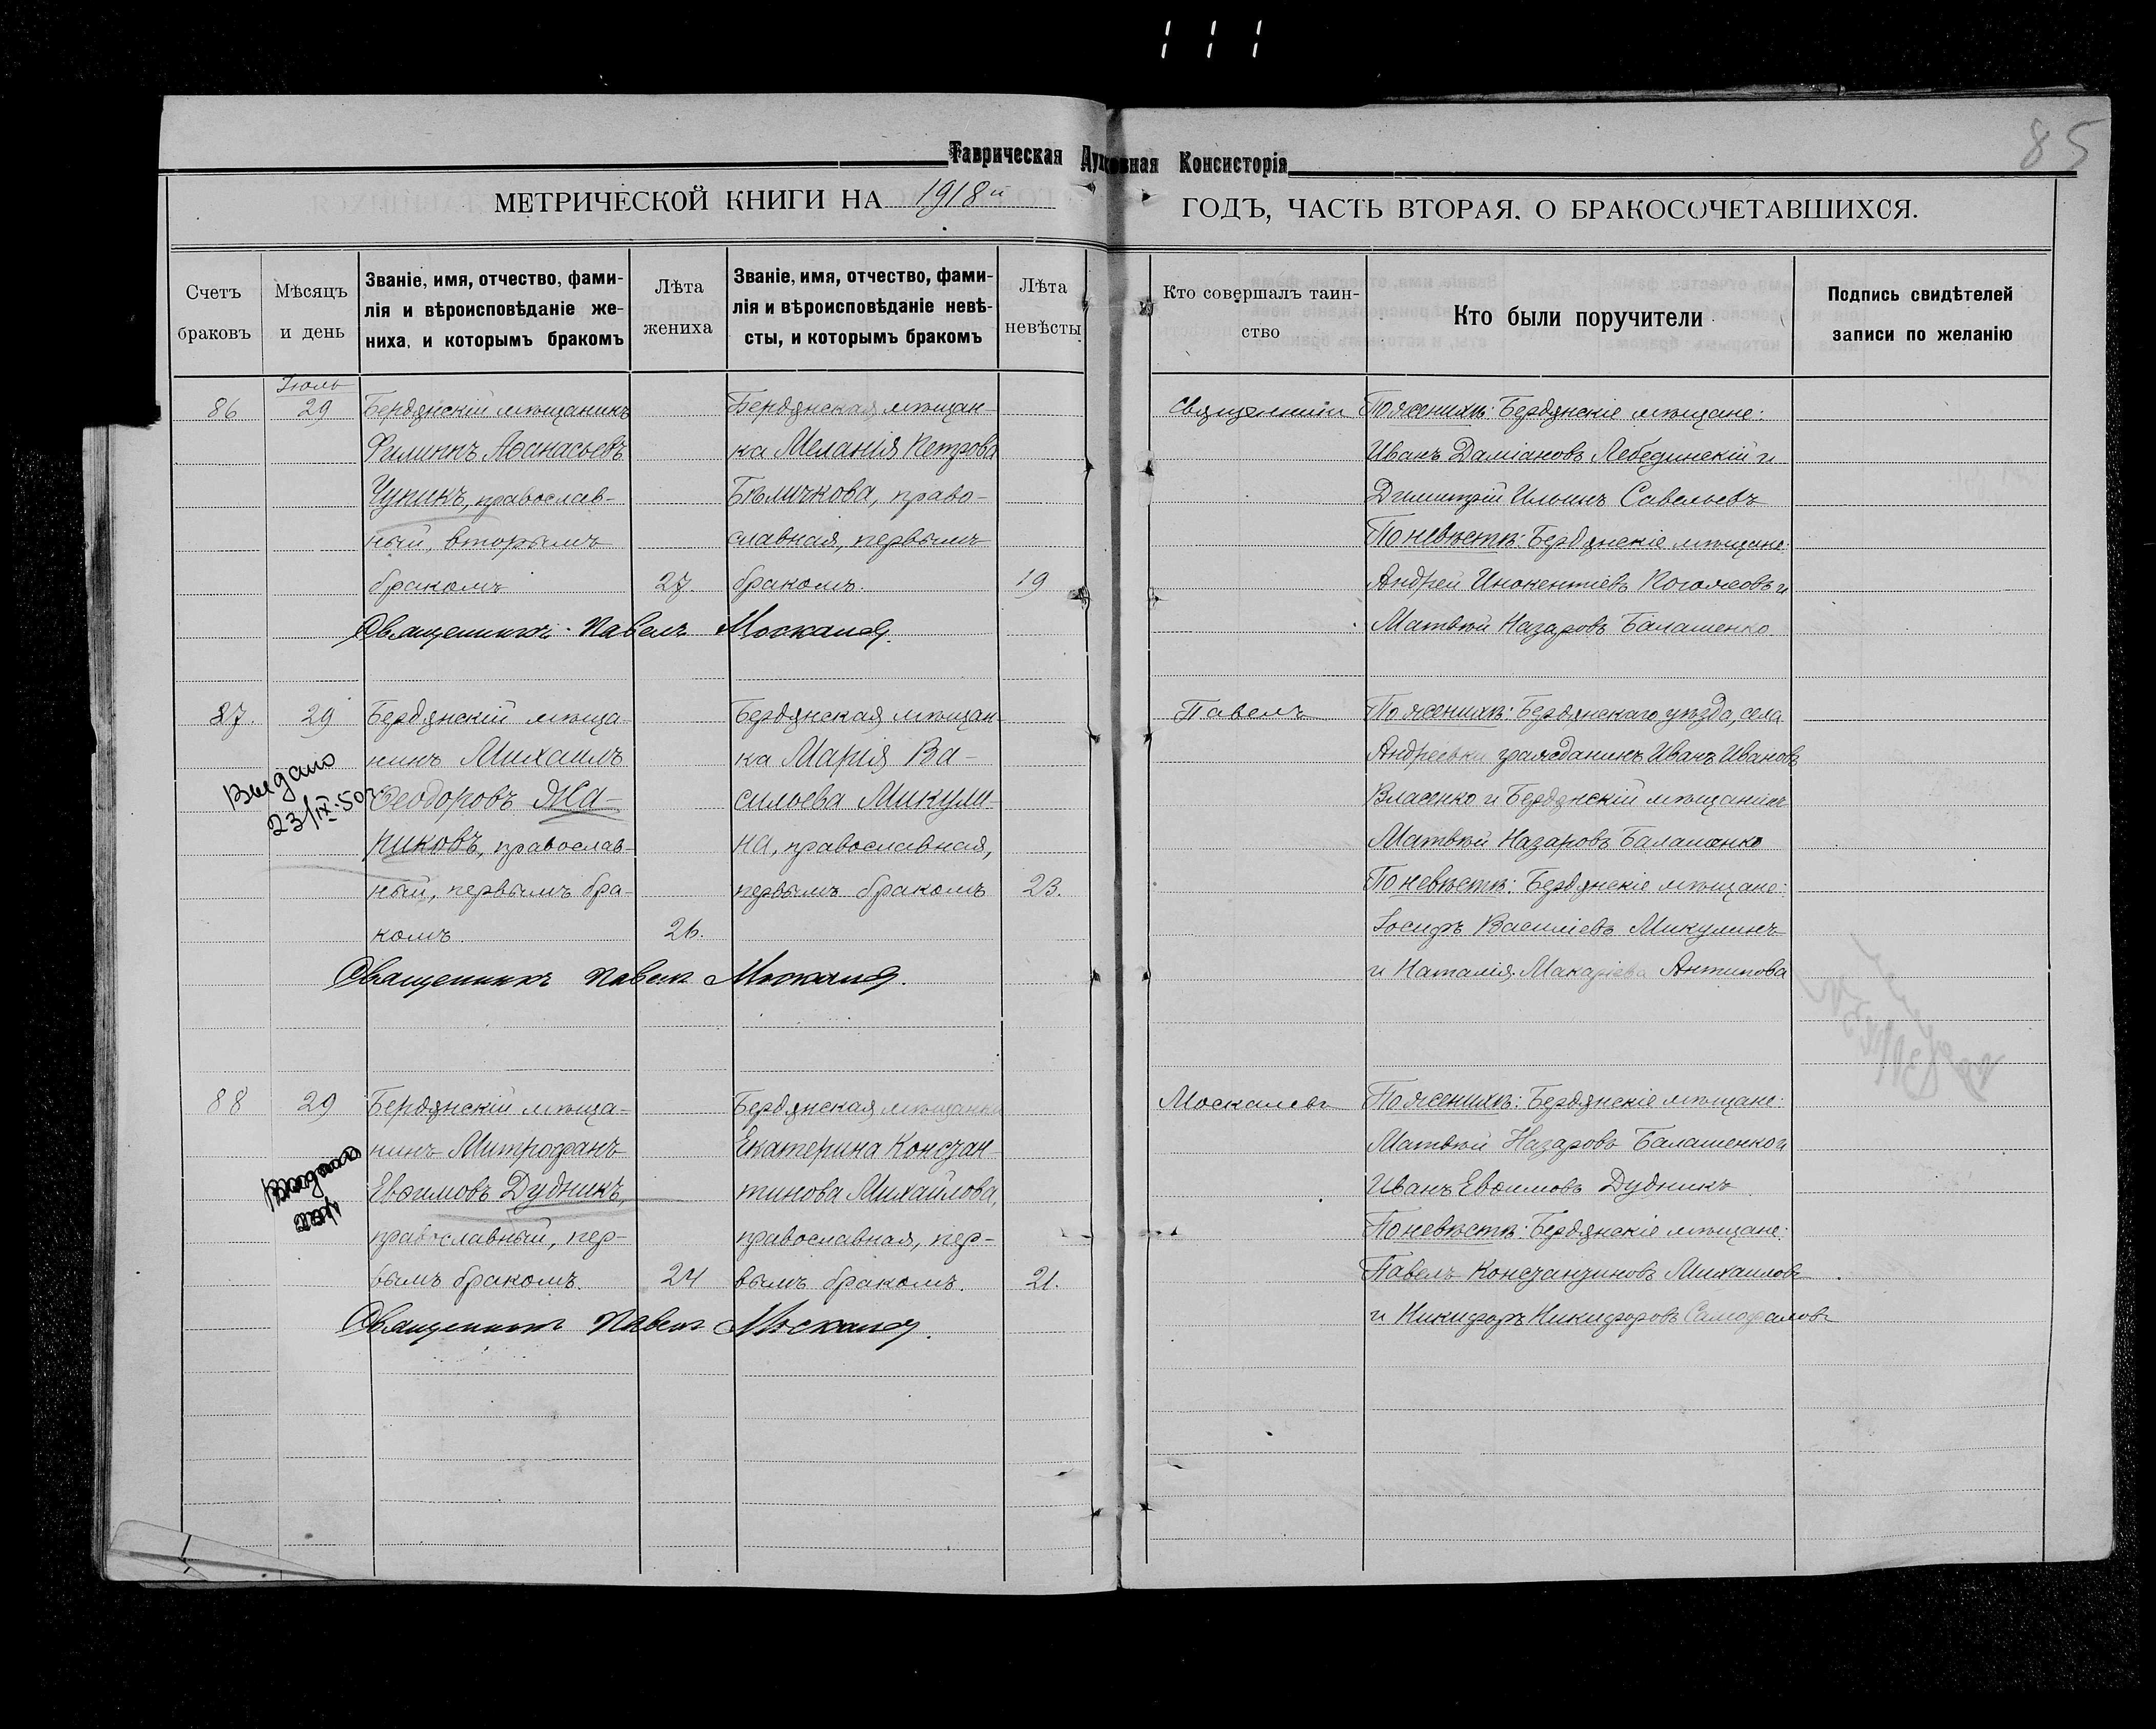 Таврическая Духовная Консисторія
85
МЕТРИЧЕСКОЙ КНИГИ НА 1918й ГОДЪ, ЧАСТЬ ВТОРАЯ, О БРАКОСОЧЕТАВШИХСЯ.
Счетъ браковъ
Мѣсяцъ и день
Званіе, имя, отчество, фами-
лія и вѣроисповѣданіе же-
ниха, и которымъ бракомъ
Лѣта жениха
Званіе, имя, отчество, фами-
лія и вѣроисповѣданіе невѣ-
сты, и которымъ бракомъ
Лѣта невѣсты
Кто совершалъ таин-
ство
Кто были поручители
Подпись свидѣтелей
записи по желанію
Іюль
86
29
Бердянскій мѣщанинъ
Филиппъ Аѳанасьевъ
Чупинъ, православ-
ный, вторымъ
бракомъ
27.
Бердянская мѣщан-
ка Меланія Петрова
Бѣличкова, право-
славная, первымъ
бракомъ.
19
Священникъ Павелъ
Священникъ
По женихѣ: Бердянскіе мѣщане:
Иванъ Даміановъ Лебединскій и
Димитрій Ильинъ Савельевъ
По невѣстѣ: Бердянскіе мѣщане:
Андрей Инокентіевъ и
Матвѣй Назаровъ Балашенко.
87.
29
Выдано
23/IX-50г
Бердянскій мѣща-
нинъ Михаилъ
Ѳеодоровъ Жа-
риковъ, православ-
ный, первымъ бра-
комъ.
26.
Бердянская мѣщан-
ка Марія Ва-
сильева Микули-
на, православная,
первымъ бракомъ
23.
Священникъ Павелъ
Павелъ
По женихѣ: Бердянскаго уѣзда, села
Андреевки гражданинъ Иванъ Ивановъ
Власенко и Бердянскій мѣщанинъ
Матвѣй Назаровъ Балашенко
По невѣстѣ: Бердянскіе мѣщане:
Іосифъ Василіевъ Микулинъ
и Наталія Макаріева Антипова
88
29
Выдано
Бердянскій мѣща-
нинъ Митрофанъ
Евѳимовъ Дудникъ,
православный, пер-
вымъ бракомъ.
24
Бердянская мѣщанка
Екатерина Констан-
тинова Михайлова,
православная, пер-
вымъ бракомъ.
21.
Священникъ Павелъ
Москалевъ
По женихѣ: Бердянскіе мѣщане:
Матвѣй Назаровъ Балашенко и
Иванъ Евѳимовъ Дудникъ.
По невѣстѣ: Бердянскіе мѣщане:
Павелъ Константиновъ Михайловъ
и Никифоръ Никифоровъ Самофаловъ